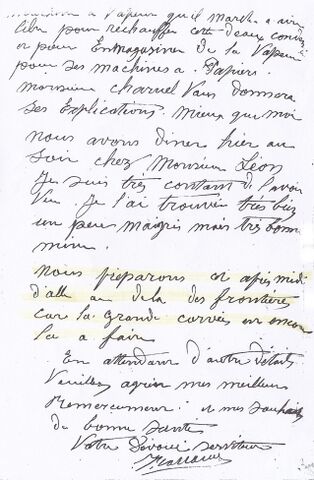 a Vapeur qu'il marche a air
libre pour rechauffer cette d'eaux
et pour Enmagaziner de la Vapeur
pour ses machines a Papiers.
monsieur charuel Vous donnera
ses Explications. mieux que moi
nous avons diner hier au
soir chez Monsieur Léon
Je suis tres contant de l'avoir
Vue. Je l'ai trouver tres bien
un peu maigris mais tres bonne
mine.
nous preparons cet apres midi
d'alle au dela des frontieres
car la grande corvée est encore
la a faire
En attendant d'autre détails
Veuillez agréer mes meilleurs
Remerciement et mes souhaits
de bonne sante
Votre Devoué serviteur